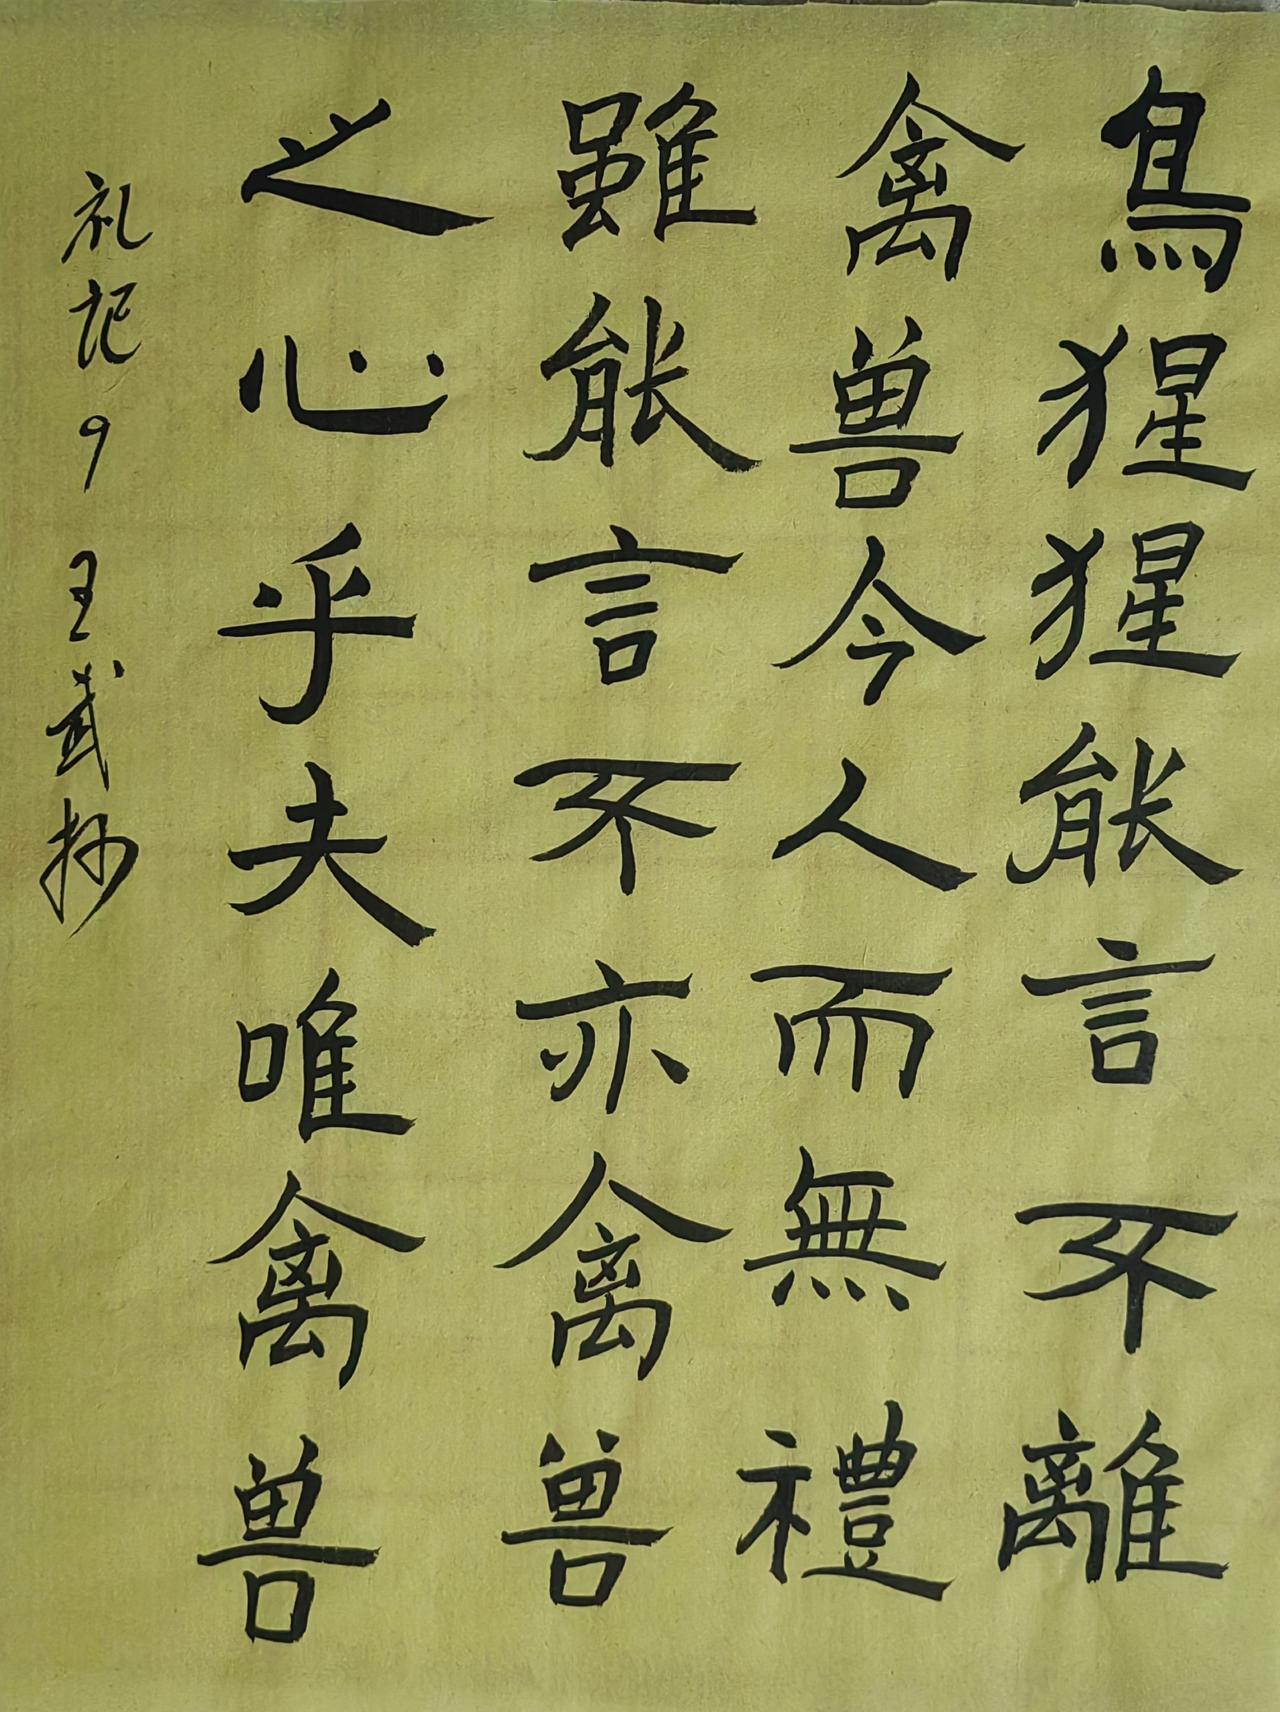 鳥猩猩能言不離
禽兽今人而無禮
雖能言不亦禽兽
之心乎夫唯禽兽
礼记9 王武抄